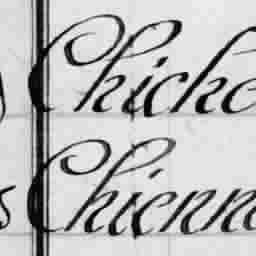 Chicke
s Chienn